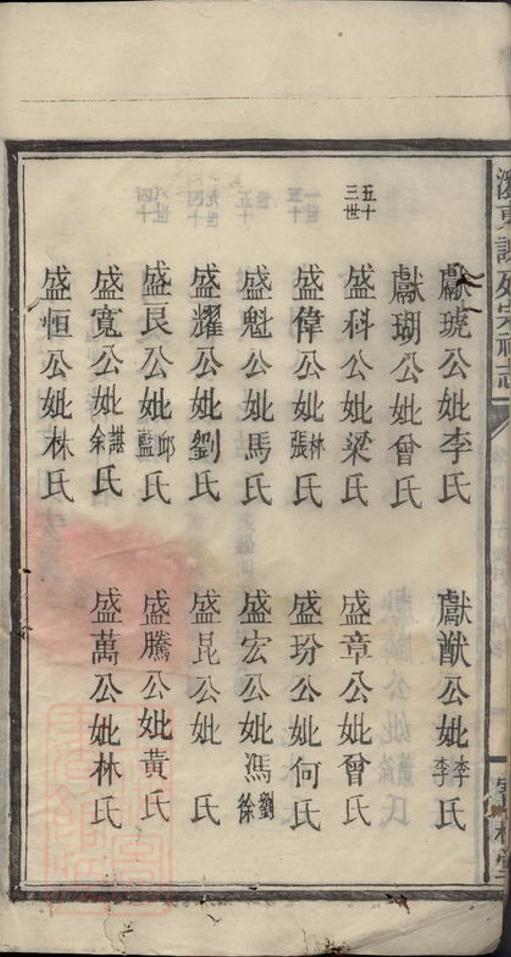 獻琥公妣李氏
獻猷公妣李李氏
獻瑚公妣曾氏
五十三世
盛科公妣梁氏
盛章公妣曾氏
盛偉公妣林張氏
盛玢公妣何氏
盛魁公妣馬氏
盛宏公妣馮劉徐
盛耀公妣劉氏
盛昆公妣氏
盛艮公妣邱藍氏
盛騰公妣黃氏
盛寬公妣諶余氏
盛萬公妣林氏
盛恒公妣林氏